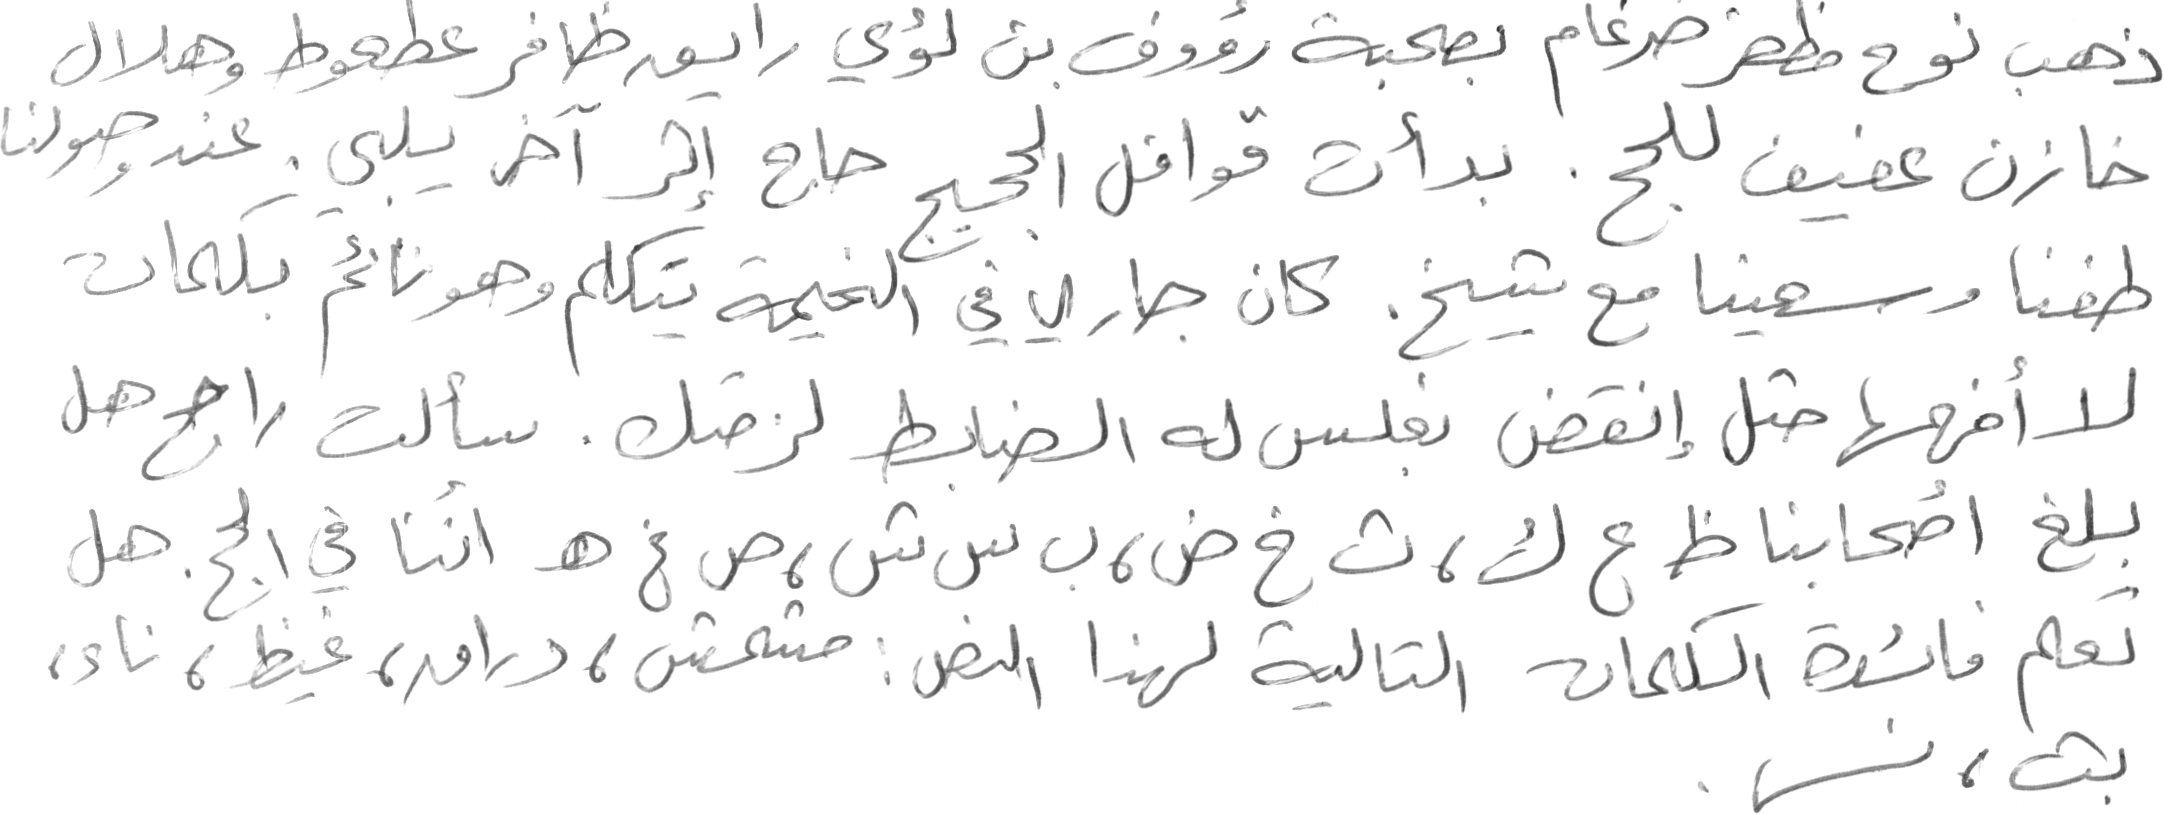 ذهب نوح مظفر ضرغام بصحبة رؤوف بن لؤي رايق ظافر عطعوط وهلال
خازن عفيف للحج. بدأت قوافل الحجيج حاج إثر آخر يلبي. عند وصولنا
طفنا وسعينا مع شيخ. كان جار لي في الخيمة يتكلم وهو نائم بكلمات
لا أفهمها مثل إنقض نغلس له الضابط لزقتك. سألت راجح هل
بلغ اصحابنا ظ ع ك، ث خ ض، ب س ش، ص غ ه اننا في الحج. هل
تعلم فائدة الكلمات التالية لهذا النص: مشمش، دراق، غيظ، ناء،
بث، نسها.